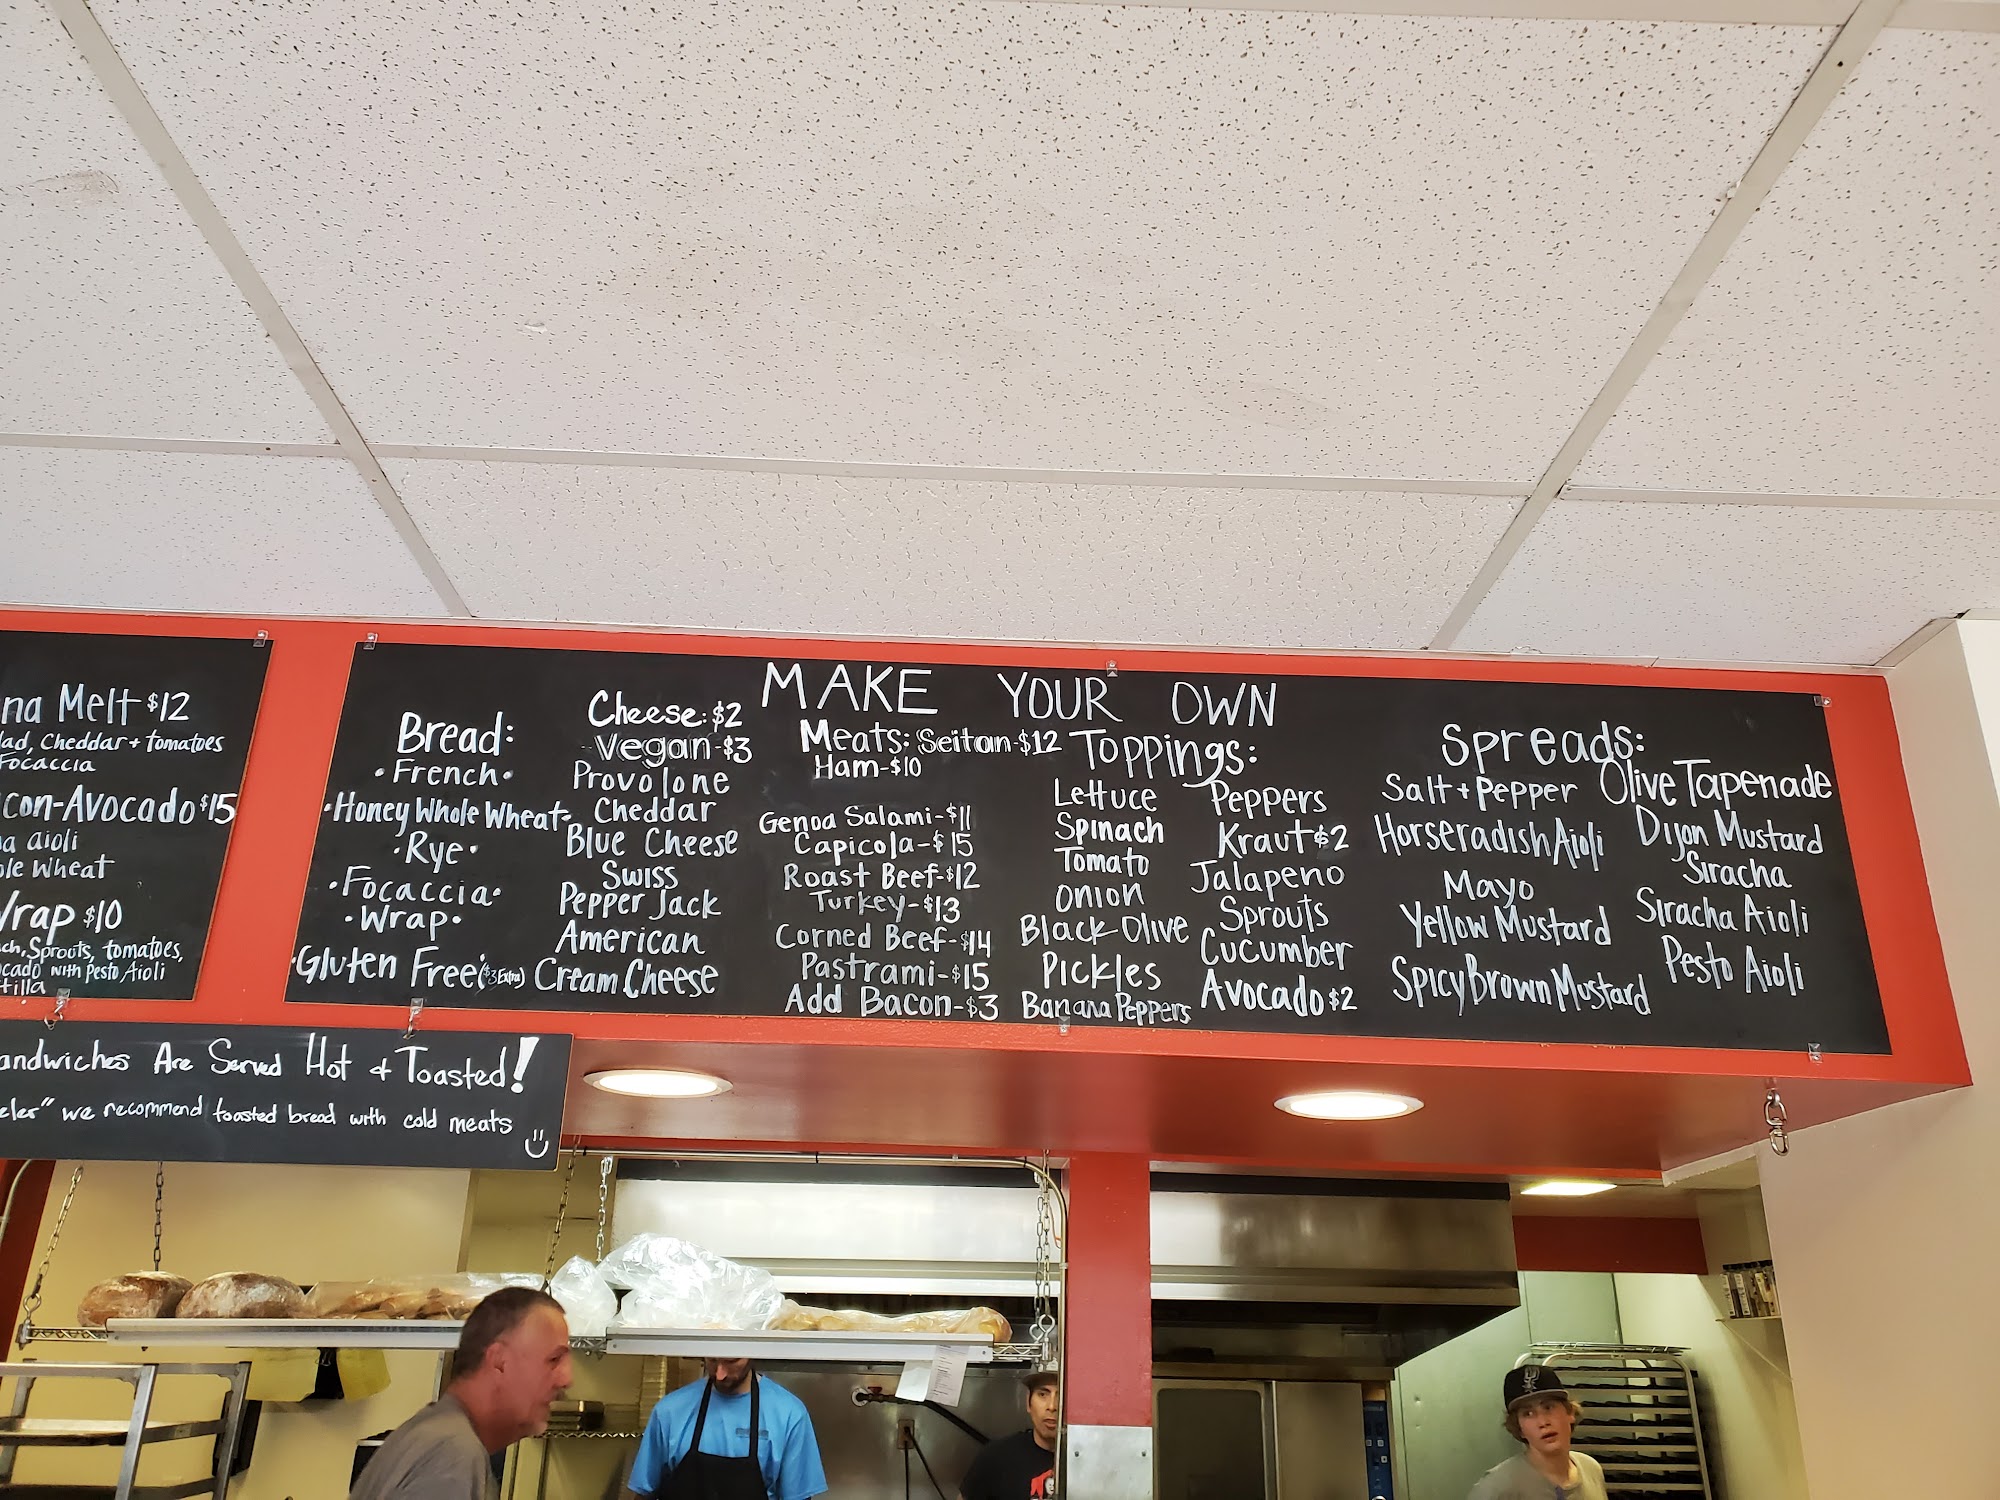 na Melt $12
lad, Cheddar + tomatoes
Focaccia
con-Avocado $15
a aioli
ole Wheat
Wrap $10
ch, Sprouts, tomatoes,
cado with Pesto Aioli
tilla
andwiches Are Served Hot & Toasted!
eler" we recommend toasted bread with cold meats
MAKE YOUR OWN
Bread:
• French •
• Honey Whole Wheat •
• Rye •
• Focaccia •
• Wrap •
• Gluten Free • ($3 Extra)
Cheese: $2
Vegan-$3
Provolone
Cheddar
Blue Cheese
Swiss
Pepper Jack
American
Cream Cheese
Meats: Seitan-$12
Ham-$10
Genoa Salami-$11
Capicola-$15
Roast Beef-$12
Turkey-$13
Corned Beef-$14
Pastrami-$15
Add Bacon-$3
Toppings:
Lettuce
Spinach
Tomato
Onion
Black Olive
Pickles
Banana Peppers
Peppers
Kraut $2
Jalapeno
Sprouts
Cucumber
Avocado $2
Spreads:
Salt + Pepper
Horseradish Aioli
Mayo
Yellow Mustard
Spicy Brown Mustard
Olive Tapenade
Dijon Mustard
Siracha
Siracha Aioli
Pesto Aioli